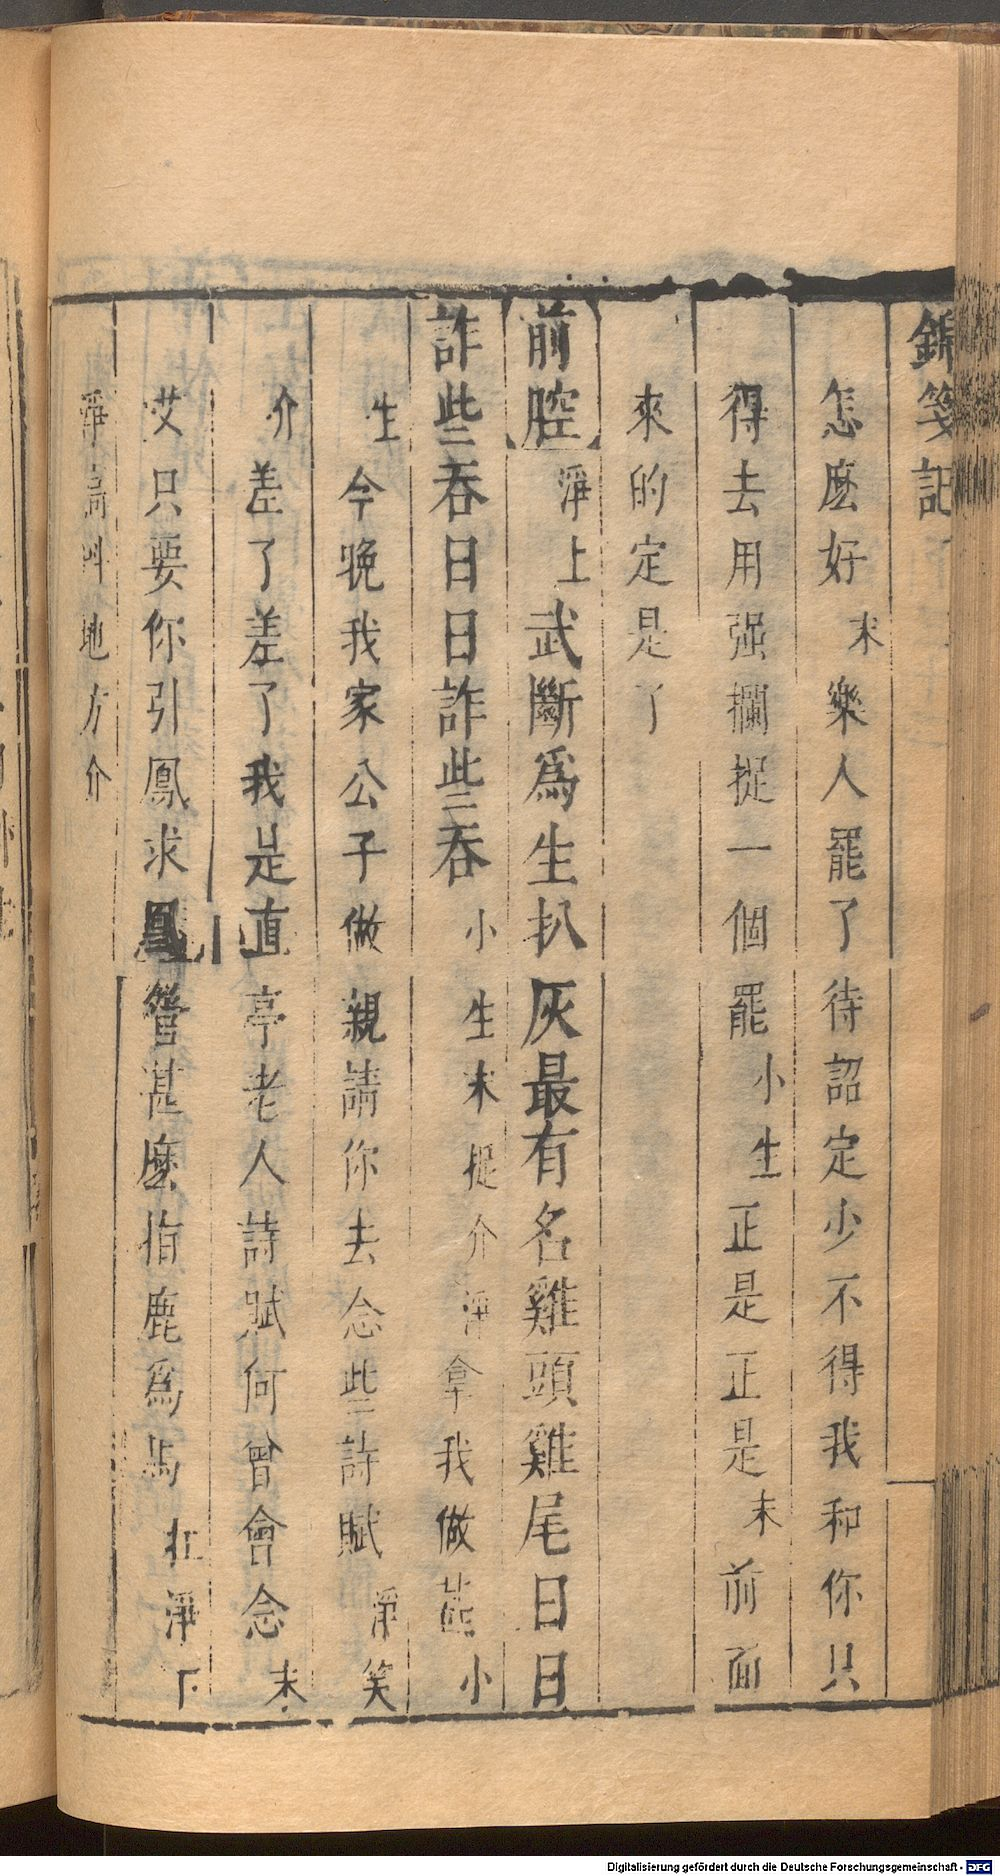 錦箋記
怎麽好末樂人罷了待詔定少不得我和你只
得去用强攔捉一個罷小生正是正是末前面
來的定是了
前腔淨上武斷爲生扒灰最有名雞頭雞尾日日
詐些吞日日詐些吞小生末捉介淨拿我做甚小
生今晚我家公子做親請你去念些詩賦淨笑
介差了差了我是直亭老人詩賦何曾會念末
艾只要你引鳳求鳳管甚麽指鹿爲馬扛淨下
淨高地方介
Digitalisierung gefördert durch die Deutsche Forschungsgemeinschaft - DFG